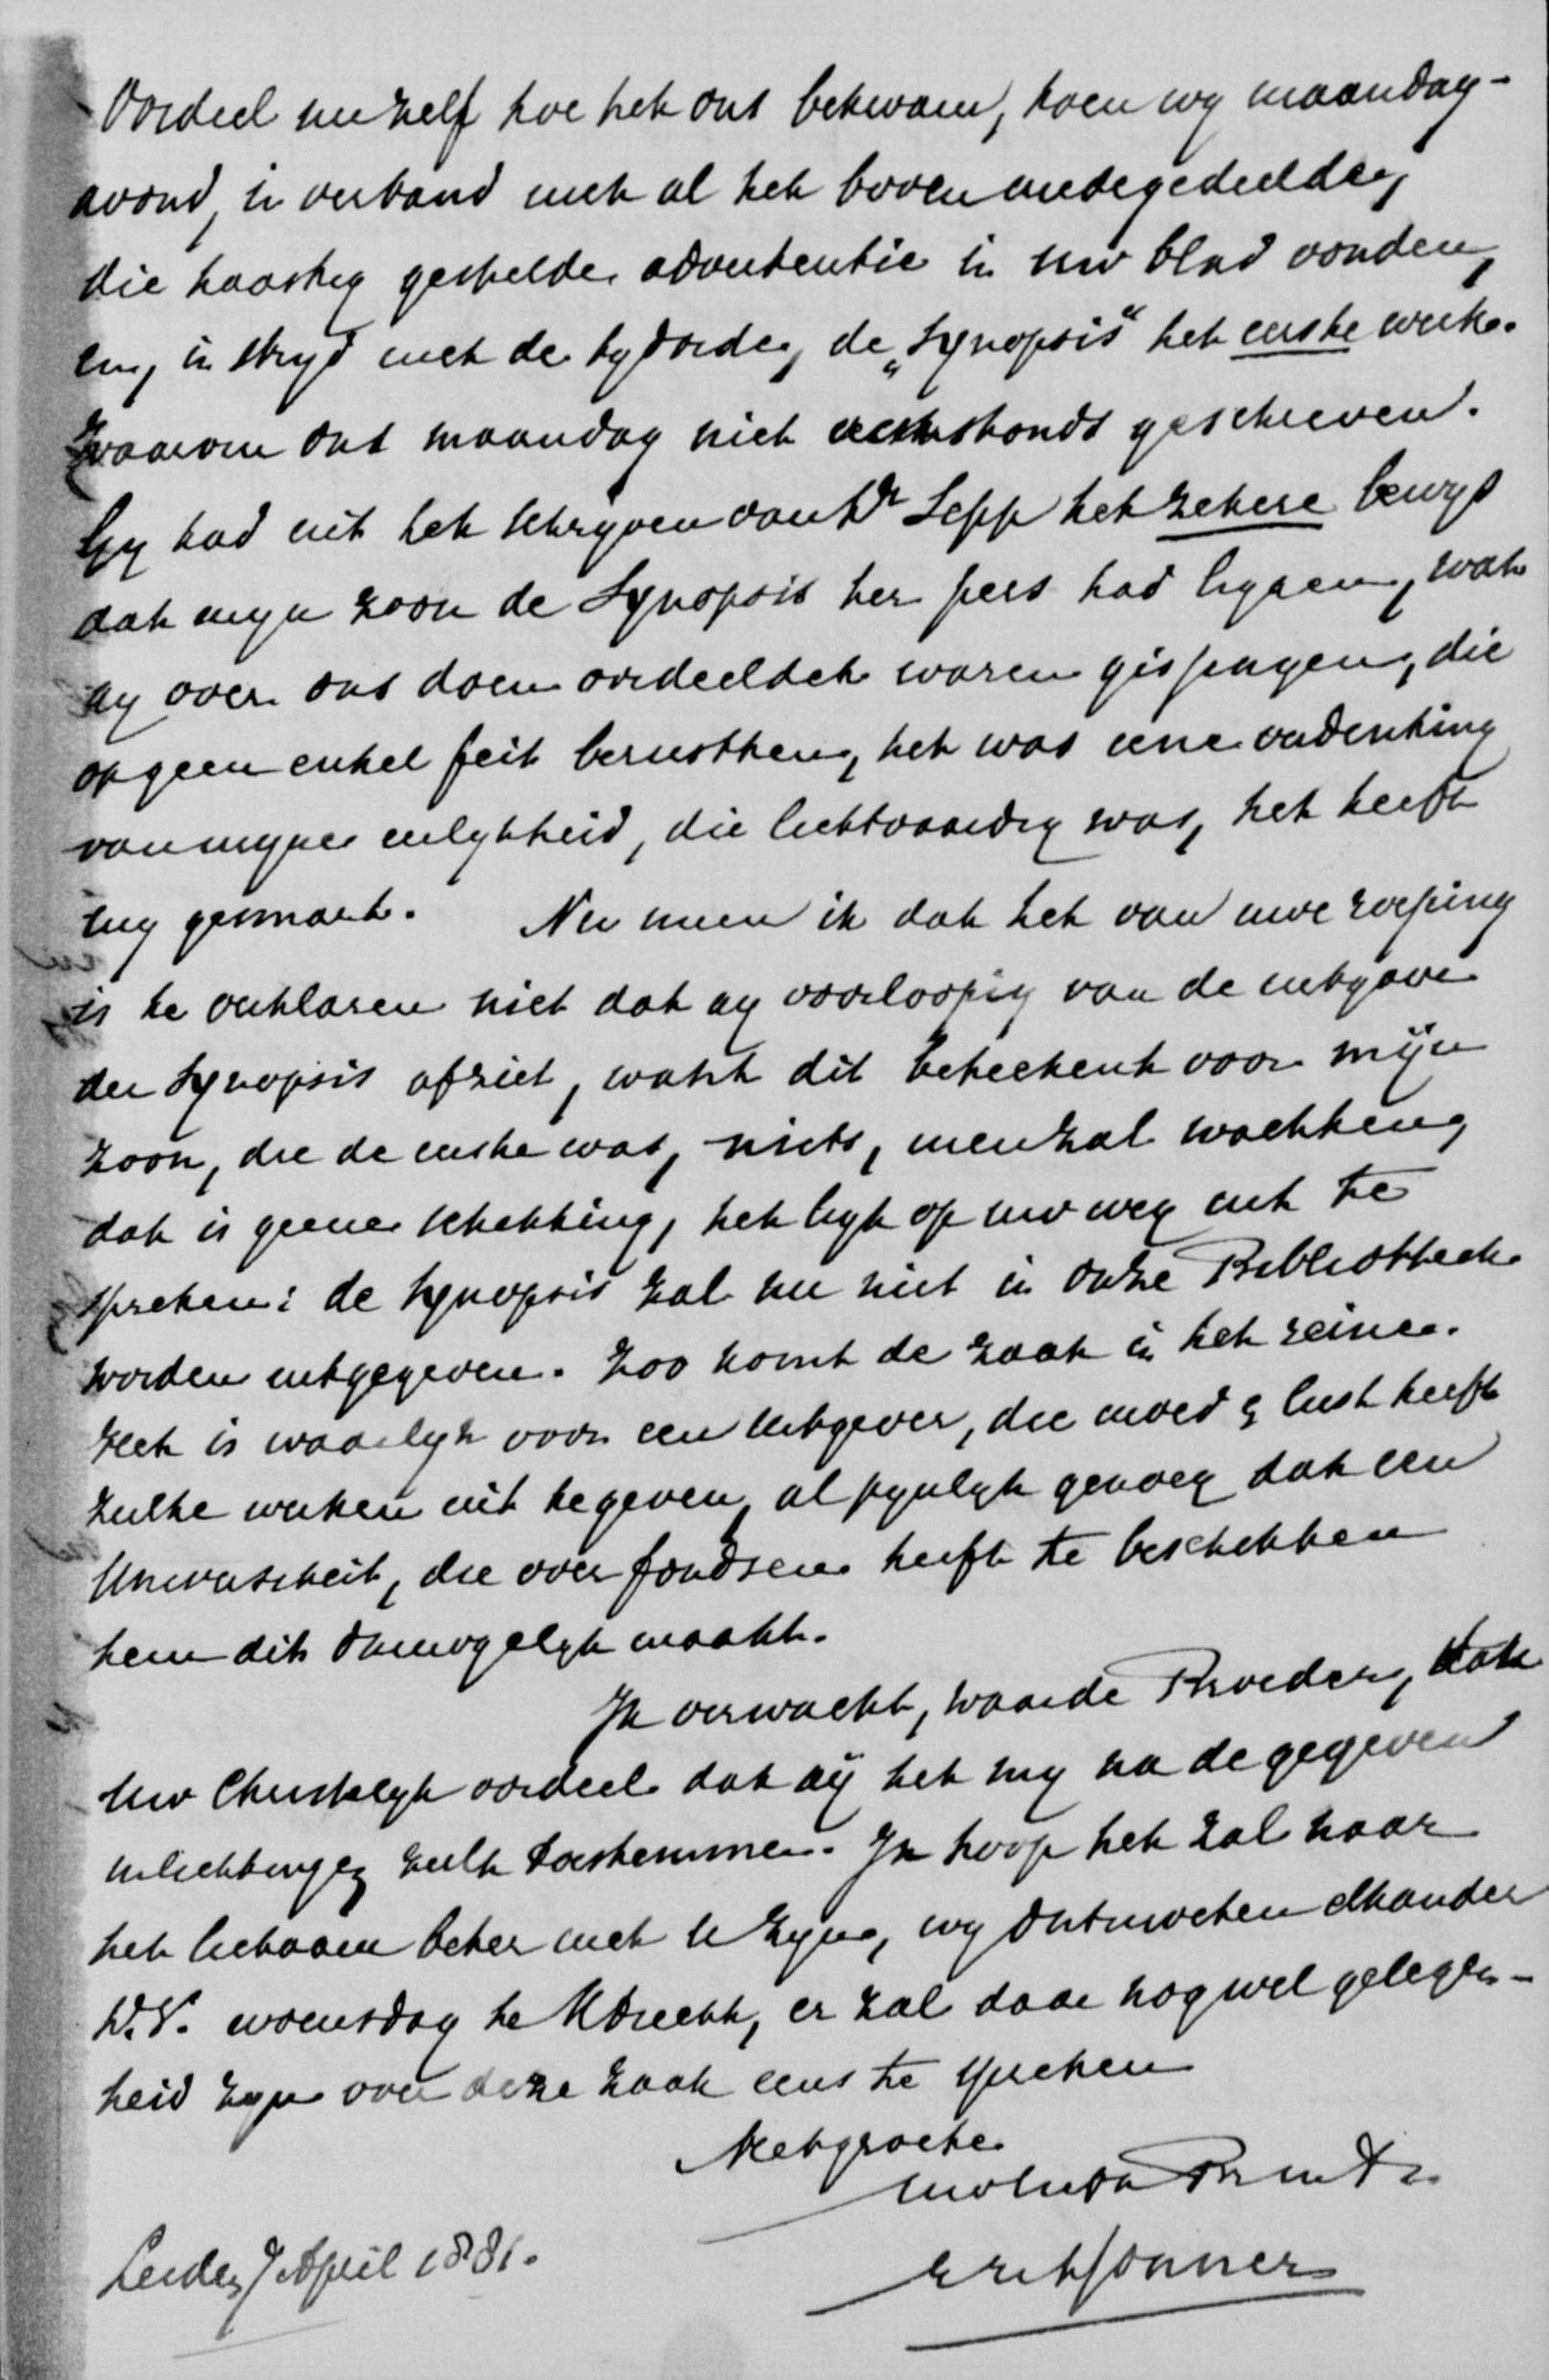 Oordeel nu zelf hoe het ons bekwam, toen wy maandag-
avond, in verband met al het bovenmedegedeelde,
die haastig gestelde advertentie in uw blad vonden,
en, in stryd met de tydorde, de „Synopsis" het eerste werk.
Waarom ons maandag niet eerst geschreven.
Gy had uit het schryven van Dr Sepp het zekere bewys
dat myn zoon de Synopsis ter pers had liggen, wat
gy over ons doen oordeeldet waren gissingen, die
op geen enkel feit berustten, het was eene verdenking
van myne eerlykheid, die lichtvaardig was, het heeft
my gesmart. Nu meen ik dat het van uwe roeping
is te verklaren niet dat gy voorloopig van de uitgave
der Synopsis afziet, want dit beteekent voor mijn
zoon, die de eerste was, niets, men zal wachten,
dat is geene schikking, het ligt op uw weg uit te
spreken: de Synopsis zal nu niet in onze Bibliotheek
worden uitgegeven. Zoo komt de zaak in het reine.
Het is waarlyk voor een Uitgever, die moed & lust heeft
zulke werken uit te geven, al pynlyk genoeg dat een
Universiteit, die over fondsen heeft te beschikken
hem dit onmogelyk maakt.
Ik verwacht, waarde Broeder, dat
Uw Christelyk oordeel dat gij het my na de gegeven
inlichtingen zult toestemmen. Ik hoop het zal naar
het lichaam beter met U zyn, wy ontmoeten elkander
D.V. woensdag te Utrecht, er zal daar nog wel gelegen-
heid zyn over deze zaak eens te spreken
Met groete
Leiden 7 April 1881.